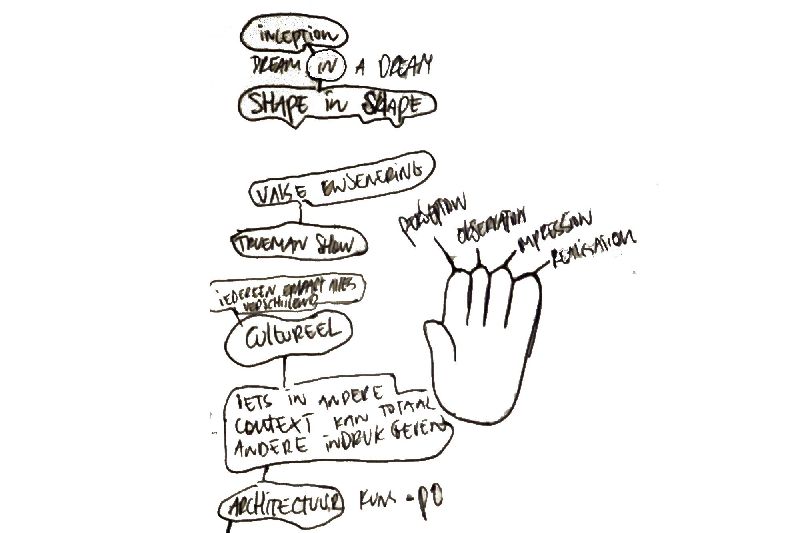 INCEPTION
DREAM IN A DREAM
SHAPE IN SHAPE
VALSE
TRUEMAN SHOW
IEDEREEN ALLES
CULTUREEL
IETS IN ANDERE
CONTEXT KAN TOTAAL
ANDERE INDRUK GEVEN
ARCHITECTUUR
PERCEPTION
OBSERVATION
IMPRESSION
REALISATION